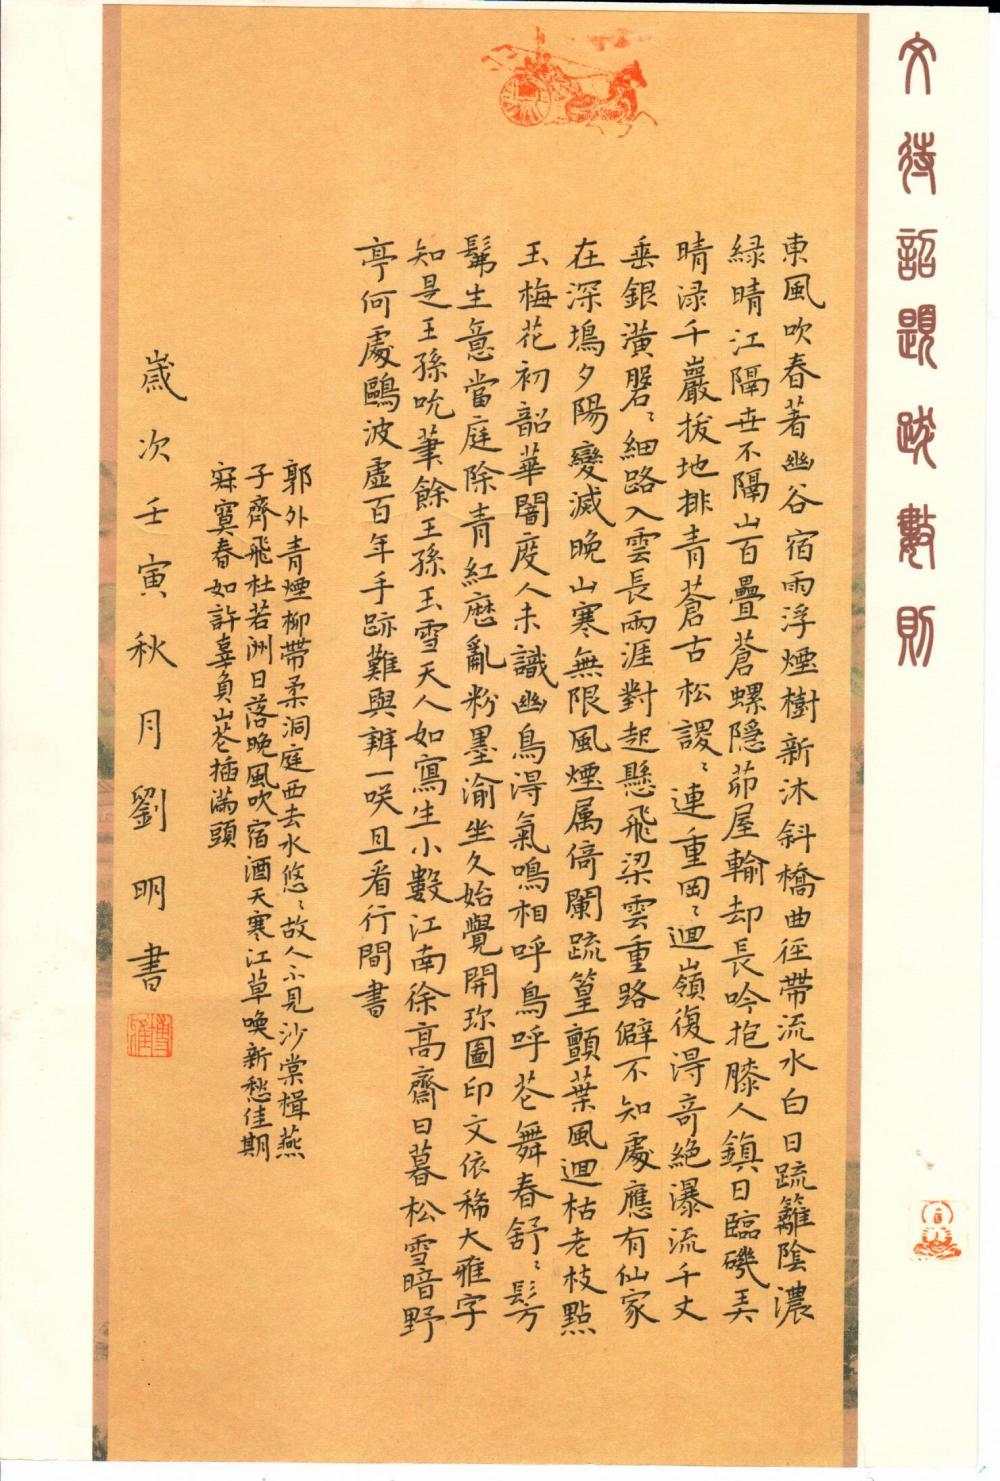 文待詔題跋數則
東風吹春著幽谷宿雨浮煙樹新沐斜橋曲徑帶流水白日疏籬陰濃
緑晴江隔世不隔山百疊蒼螺隱茆屋輸却長吟抱膝人鎮日臨磯弄
晴渌千巖拔地排青蒼古松謖〻連重岡〻迴嶺復得奇絶瀑流千丈
垂銀潢磬〻細路入雲長兩涯對起懸飛梁雲重路僻不知處應有仙家
在深塢夕陽變滅晚山寒無限風煙属倚闌疏篁顫葉風迴枯老枝點
玉梅花初韶華闇度人未識幽鳥得氣鳴相呼鳥呼花舞春舒〻髣
髴生意當庭除青紅歷亂粉墨渝坐久始覺開珎圖印文依稀大雅字
知是王孫吮筆餘王孫玉雪天人如寫生小數江南徐高齋日暮松雪暗野
亭何處鷗波虛百年手跡難與辨一咲且看行間書
郭外青煙柳帶柔洞庭西去水悠〻故人不見沙棠楫燕
子齊飛杜若洲日落晚風吹宿酒天寒江草喚新愁佳期
寂寞春如許辜負山花插滿頭
歲次壬寅秋月劉明書